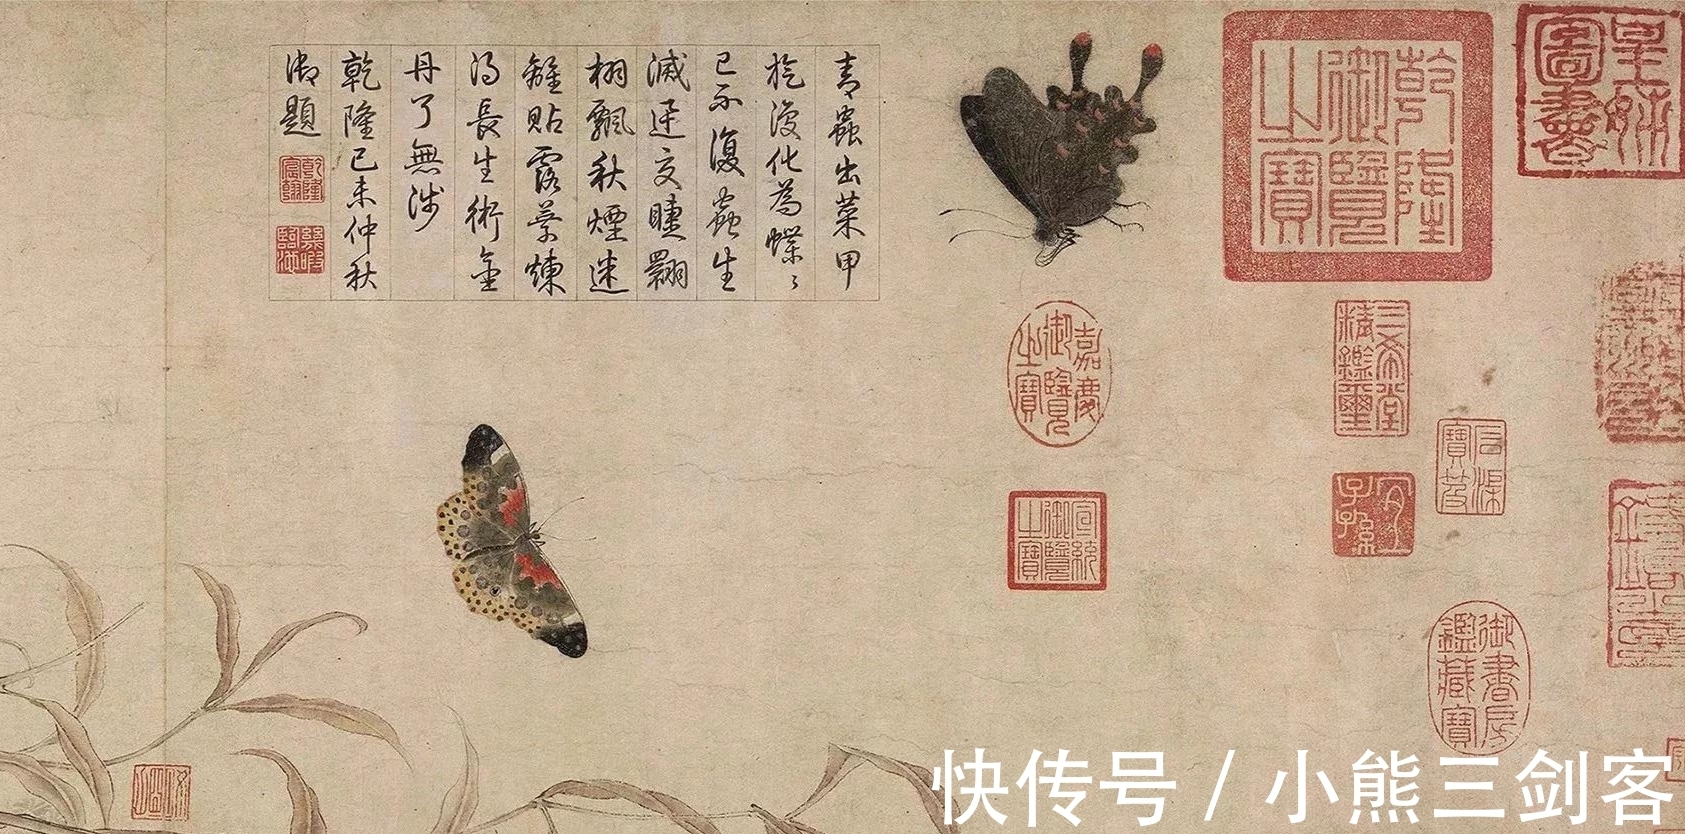 青蟲出菜甲
旋復化為蝶々
已不復蟲生
滅迅交睫翾
栩飄秋煙迷
離貼露葉煉
得長生術金
丹了無涉
乾隆己未仲秋
御題
乾隆宸翰
幾暇臨池
皇姊圖書
乾隆御覽之寶
嘉慶御覽之寶
三希堂精鑑璽
石渠寶笈
宜子孫
宣統御覽之寶
御書房鑑藏寶
快传号 / 小熊三剑客